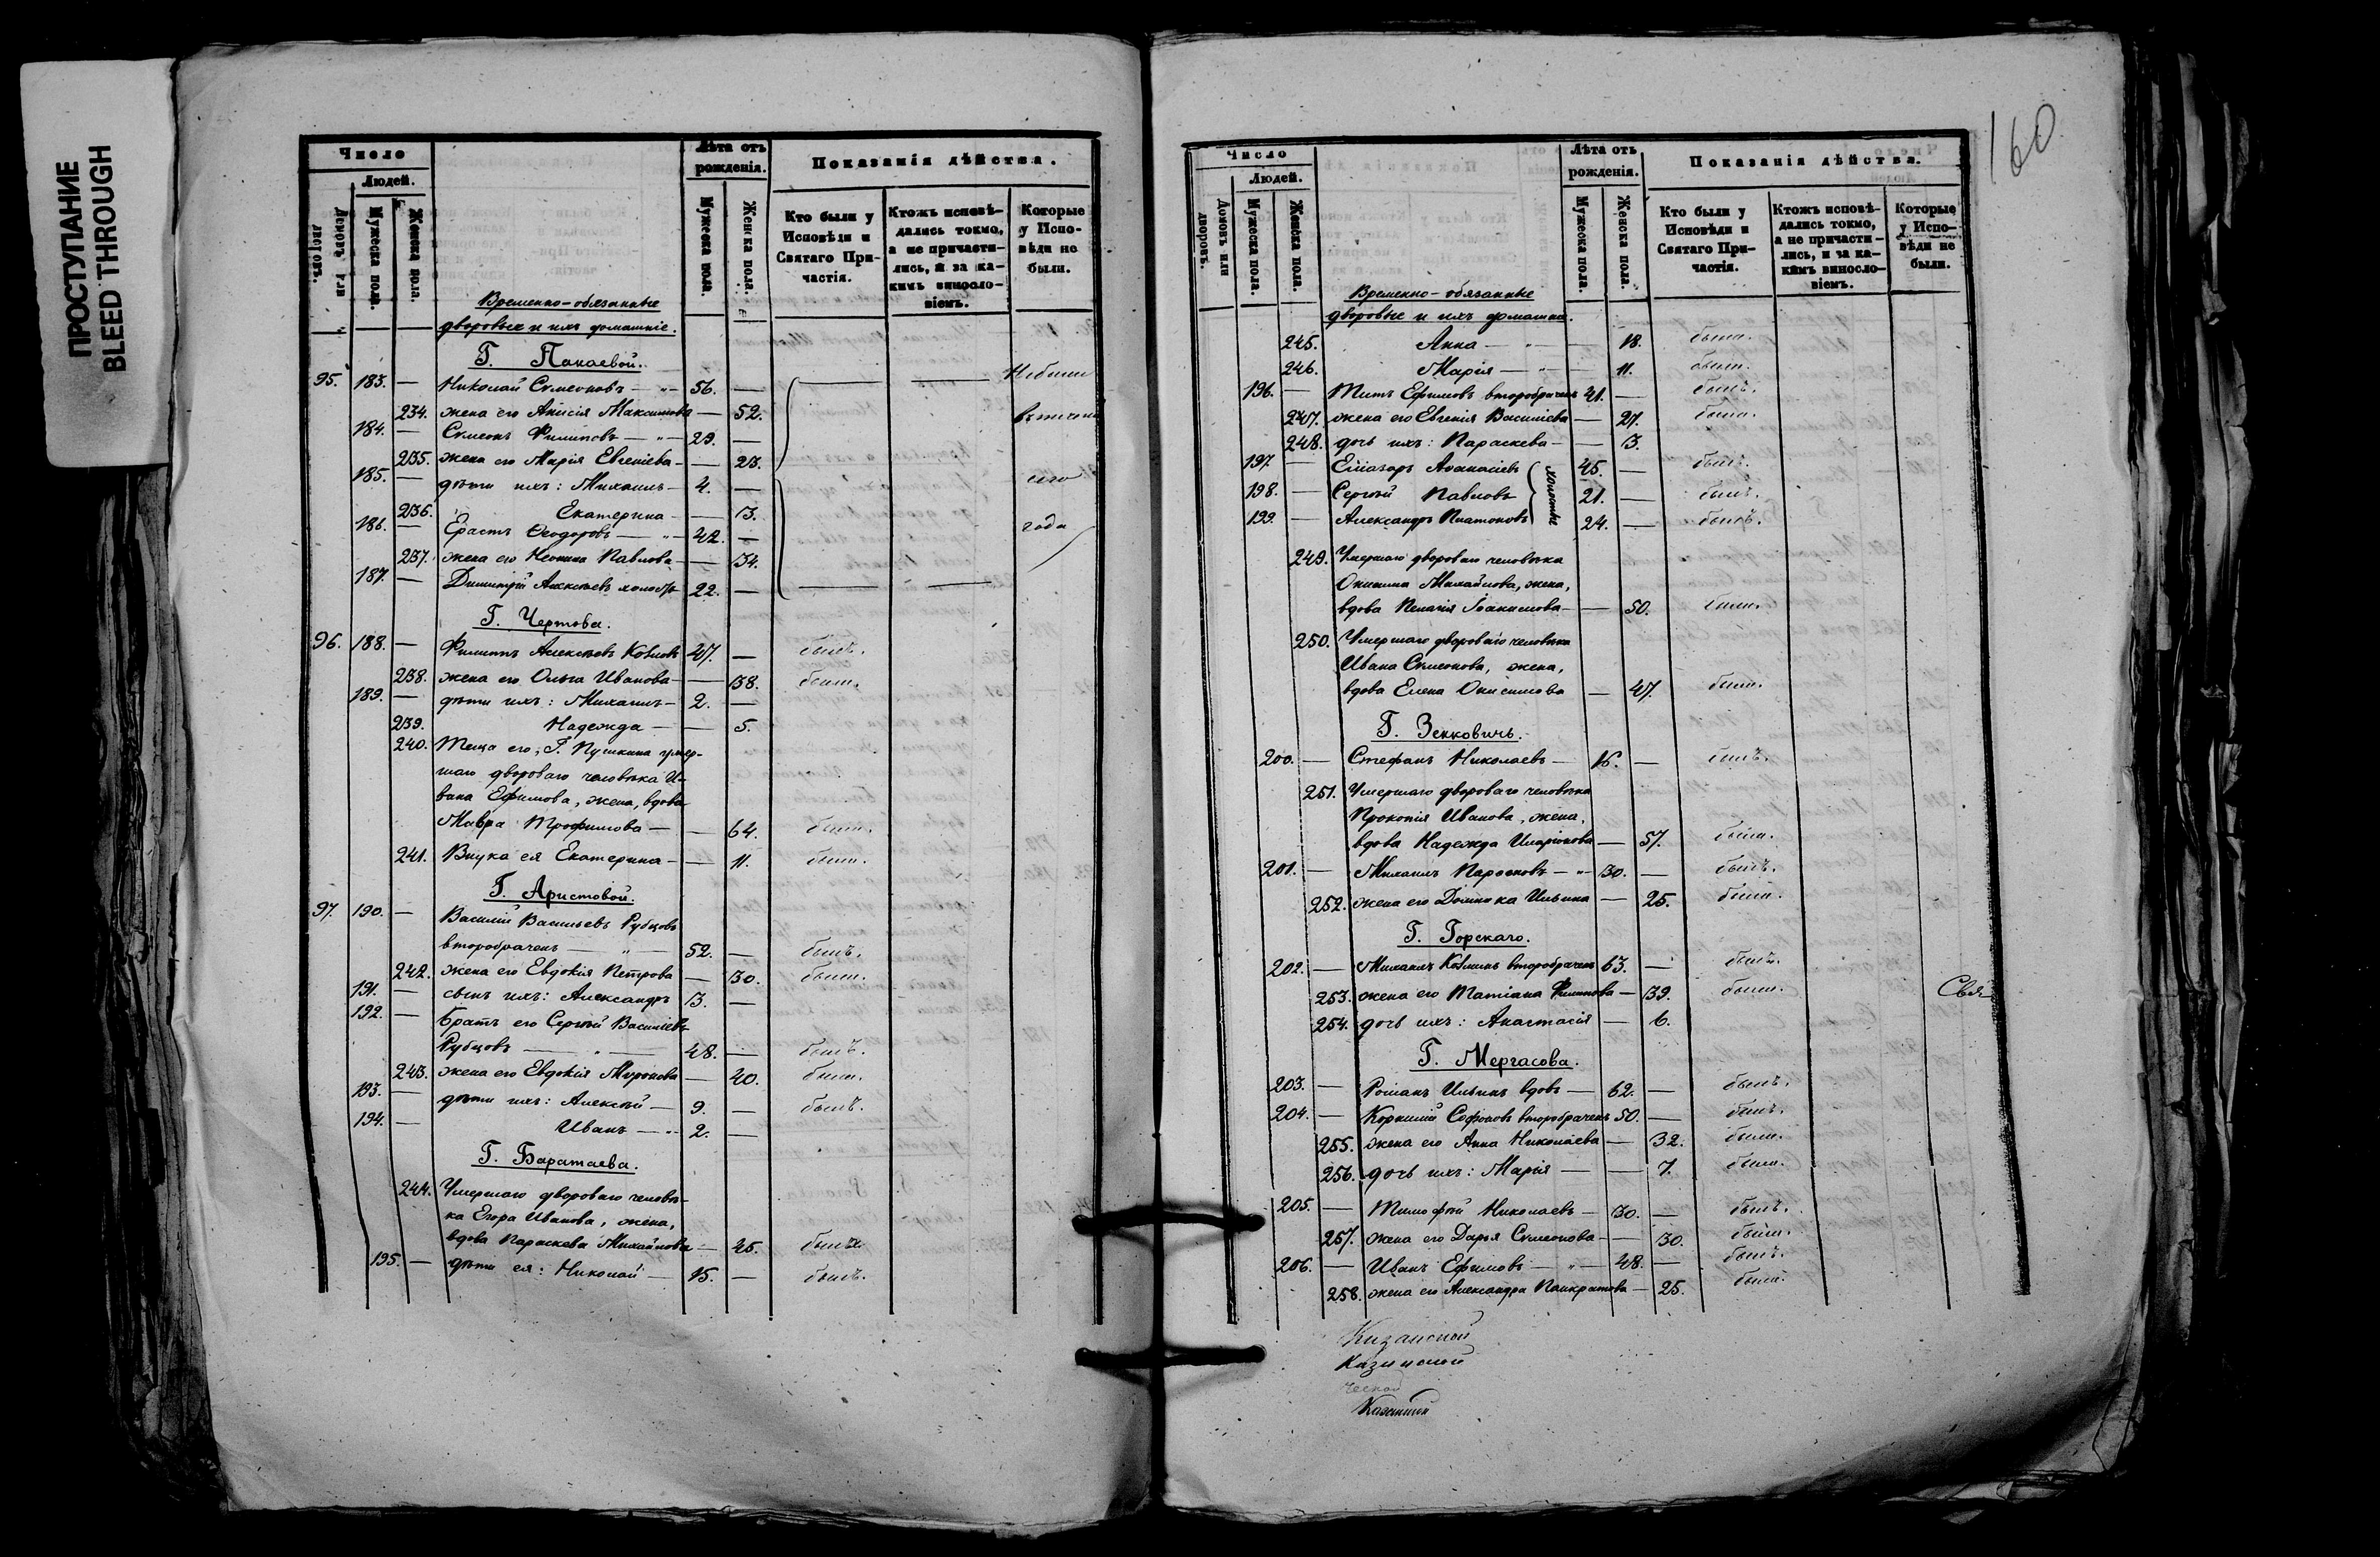 ПРОСТУПАНИЕ
BLEED THROUGH
Число
Людей.
Мужеска пола.
Женска пола.
Лѣта отъ рожденія.
Мужеска пола.
Женска пола.
Показанія дѣйства.
Кто были у Исповѣди и Святаго Причастія.
Ктожъ исповѣдались токмо, а не причастились, и за какимъ винословіемъ.
Которые у Исповѣди не были.
Временно-обязанные
дворовые и ихъ домашніе.
Г. Панаевой.
95. 183. — Николай Симеоновъ — 56. — Небыли
234. жена его Анисія Максимова — 52. въ теченіи
184. — Симеонъ Филиповъ — 29. —
235. жена его Марія Евгеніева — 23.
185. — дѣти ихъ: Михаилъ — 4. — сего
236. Екатерина — 3.
186. — Ерастъ Ѳеодоровъ — 42. — года
237. жена его Неонила Павлова — 34.
187. — Димитрій Алексѣевъ холостъ 22. —
Г. Чертова.
96. 188. — Филиппъ Алексѣевъ Козловъ 47. — былъ.
238. жена его Ольга Иванова — 38. была.
189. — дѣти ихъ: Михаилъ — 2. —
239. Надежда — 5.
240. Теща его, Г. Пушкина умер-
шаго двороваго человѣка И-
вана Ефимова, жена, вдова
Мавра Трофимова — 64. была.
241. Внука ея Екатерина — 11. была.
Г. Аристовой.
97. 190. — Василій Васильевъ Рубцовъ
второбраченъ — 52. — былъ.
242. жена его Евдокія Петрова — 30. была.
191. — сынъ ихъ: Александръ 3. —
192. — Братъ его Сергѣй Василіевъ
Рубцовъ — 48. — былъ.
243. жена его Евдокія Миронова — 40. была.
193. — дѣти ихъ: Алексѣй — 9. — былъ.
194. — Иванъ — 2. —
Г. Баратаева.
244. Умершаго двороваго человѣ-
ка Егора Иванова, жена,
вдова Параскева Михайлова — 45. была.
195. — дѣти ея: Николай — 15. — былъ.
160
Число
Людей.
Домовъ или дворовъ.
Мужеска пола.
Женска пола.
Лѣта отъ рожденія.
Мужеска пола.
Женска пола.
Показанія дѣйства.
Кто были у Исповѣди и Святаго Причастія.
Ктожъ исповѣдались токмо, а не причастились, и за какимъ винословіемъ.
Которые у Исповѣди не были.
Временно-обязанные
дворовые и ихъ домашніе.
245. Анна — 18. была.
246. Марія — 11. была.
196. — Титъ Ефимовъ второбраченъ 41. — былъ.
247. жена его Евгенія Василіева — 27. была.
248. дочь ихъ: Параскева — 3.
197. — Еліазаръ Аѳанасіевъ 45. — былъ.
198. — Сергѣй Павловъ холосты 21. — былъ.
199. — Александръ Платоновъ 24. — былъ.
249. Умершаго двороваго человѣка
Онисима Михайлова, жена,
вдова Пелагія Іоакимова — 50. была.
250. Умершаго двороваго человѣка
Ивана Симеонова, жена,
вдова Елена Онисимова — 47. была.
Г. Зенковичъ.
200. — Стефанъ Николаевъ — 16. — былъ.
251. Умершаго двороваго человѣка
Прокопія Иванова, жена,
вдова Надежда Иларіонова — 57. была.
201. — Михаилъ Парѳеновъ — 30. — былъ.
252. жена его Домника Ильина — 25. была.
Г. Горскаго.
202. — Михаилъ Козминъ второбраченъ 63. — былъ.
253. жена его Татіана Филипова — 39. была.
254. дочь ихъ: Анастасія — 6.
Свя
Г. Мергасова.
203. — Романъ Ильинъ вдовъ — 62. — былъ.
204. — Корнилій Софоновъ второбраченъ 50. — былъ.
255. жена его Анна Николаева — 32. была.
256. дочь ихъ: Марія — 7. была.
205. — Тимофей Николаевъ — 30. — былъ.
257. жена его Дарья Симеонова — 30. была.
206. — Иванъ Ефимовъ — 48. — былъ.
258. жена его Александра Панкратова — 25. была.
Казанской
Казанской
ческой
Казанской